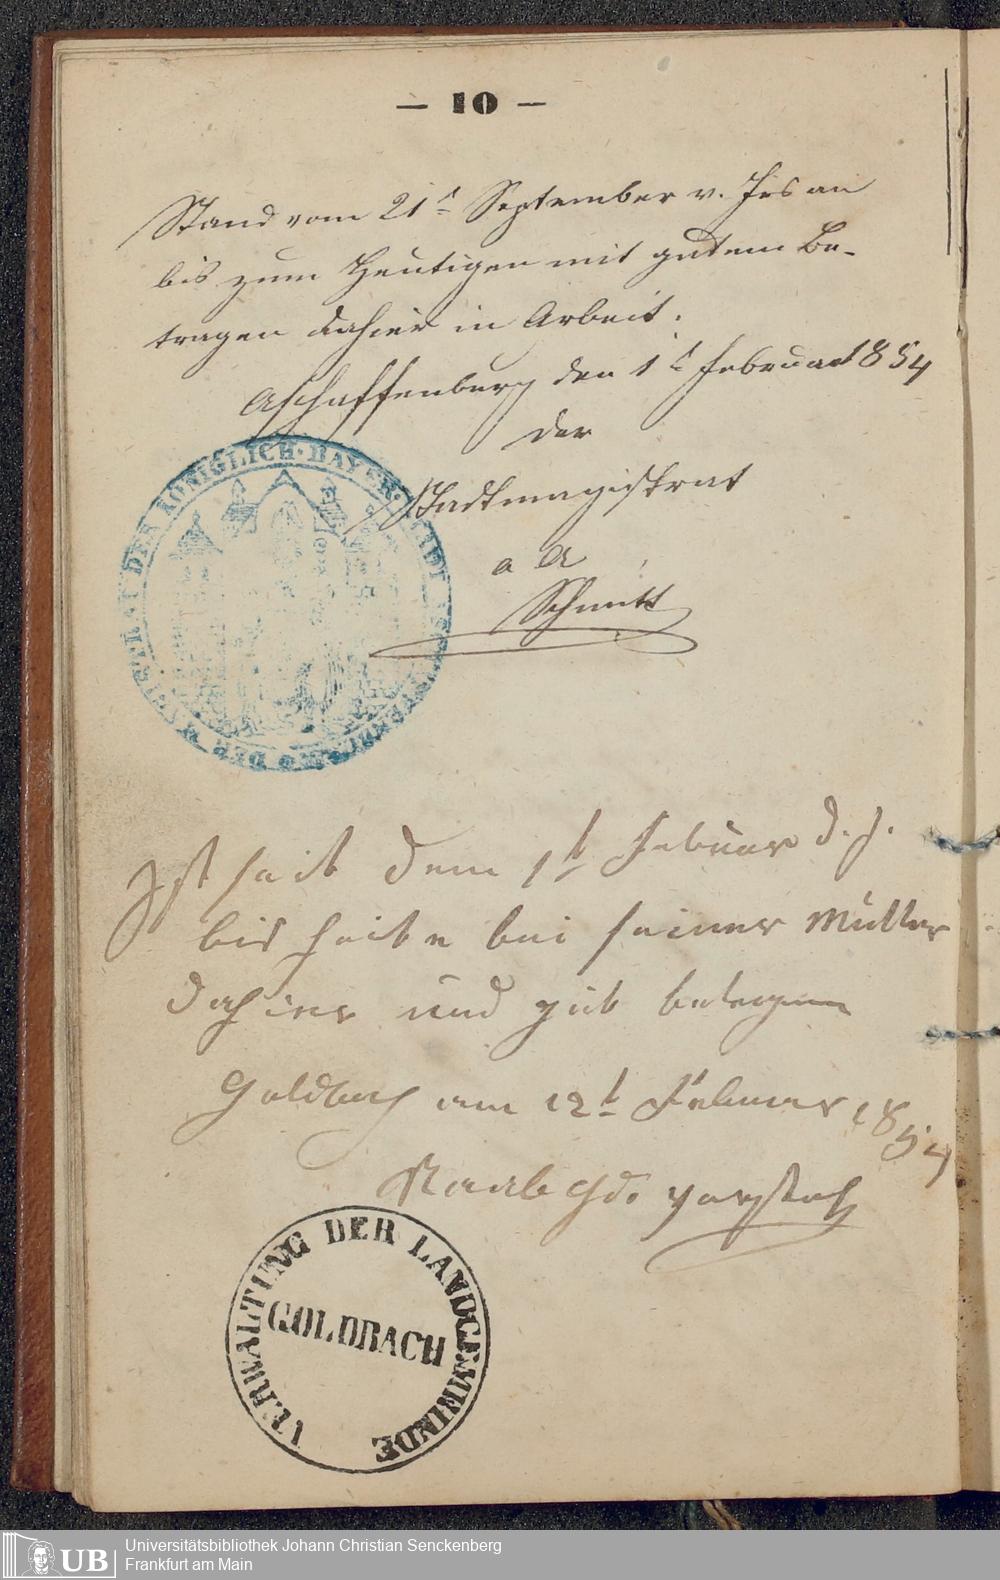 — 10 —
Stand vom 21t September v. Jrs an
bis zum Heutigen mit gutem Be-
tragen dahier in Arbeit.
Aschaffenburg den 1t Februar 1854
Der
Stadtmagistrat
a a
Schmitt
DER MAGISTRAT DER KÖNIGLICH BAYER. STADT ASCHAFFENBURG
Ist seit dem 1t Februar d. J.
bis heite bei seiner Mutter
dahier und gut betragen
Goldbach am 12t Februar 1854
Raab Gd. Vorsteh
VERWALTUNG DER LANDGEMEINDE
GOLDBACH
UB
Universitätsbibliothek Johann Christian Senckenberg
Frankfurt am Main